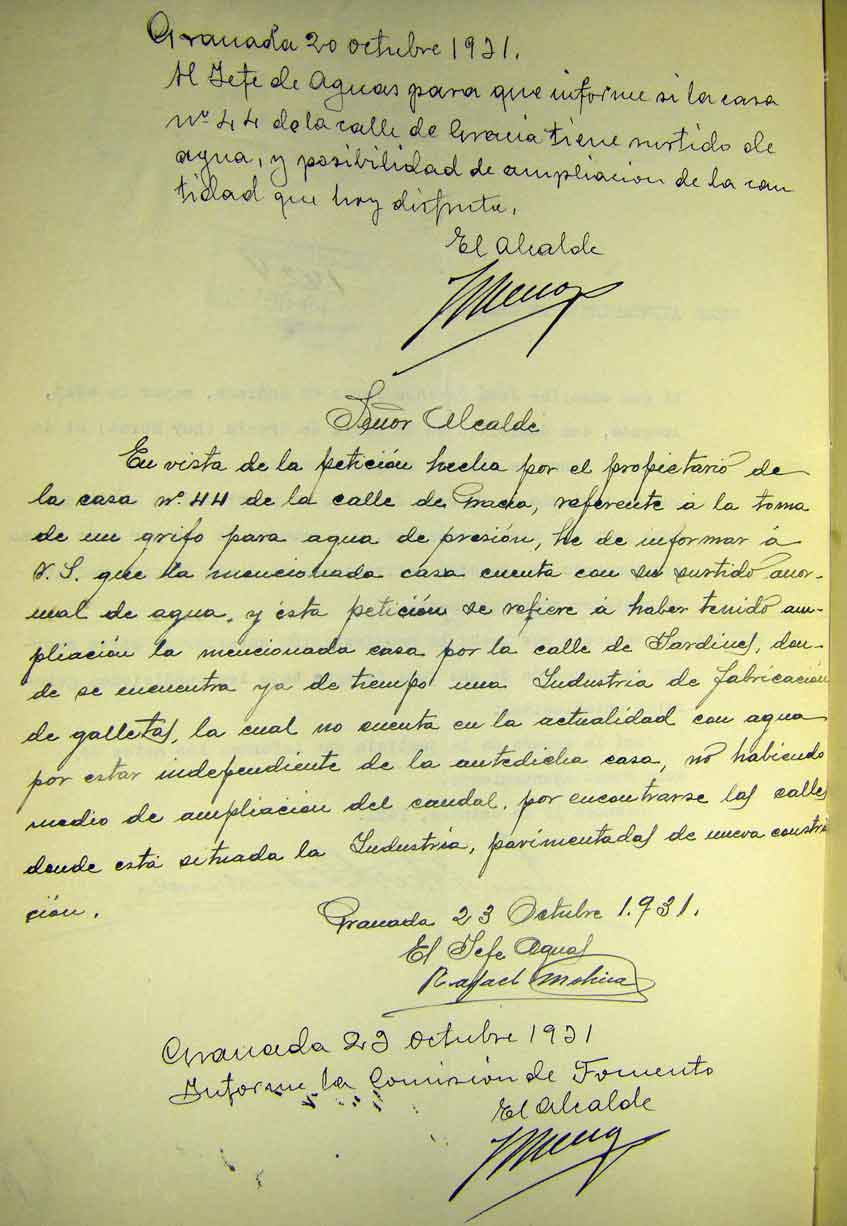 Granada 20 octubre 1931.
Al Jefe de Aguas para que informe si la casa
nº 44 de la calle de Gracia tiene surtido de
agua, y posibilidad de ampliacion de la can
tidad que hoy disfruta.
El Alcalde
Señor Alcalde
En vista de la petición hecha por el propietario de
la casa nº 44 de la calle de Gracia, referente á la toma
de un grifo para agua de presión, he de informar á
V. S. que la mencionada casa cuenta con su surtido anor-
mal de agua, y ésta petición se refiere á haber tenido am-
pliación la mencionada casa por la calle de Jardines, don-
de se encuentra ya de tiempo una Industria de fabricación
de galletas, la cual no cuenta en la actualidad con agua
por estar independiente de la antedicha casa, no habiendo
medio de ampliación del caudal, por encontrarse las calles
donde está situada la Industria, pavimentadas de nueva constru
ción.
Granada 23 Octubre 1.931.
El Jefe Aguas
Rafael Molina
Granada 23 octubre 1931
Informe la Comisión de Fomento
El Alcalde